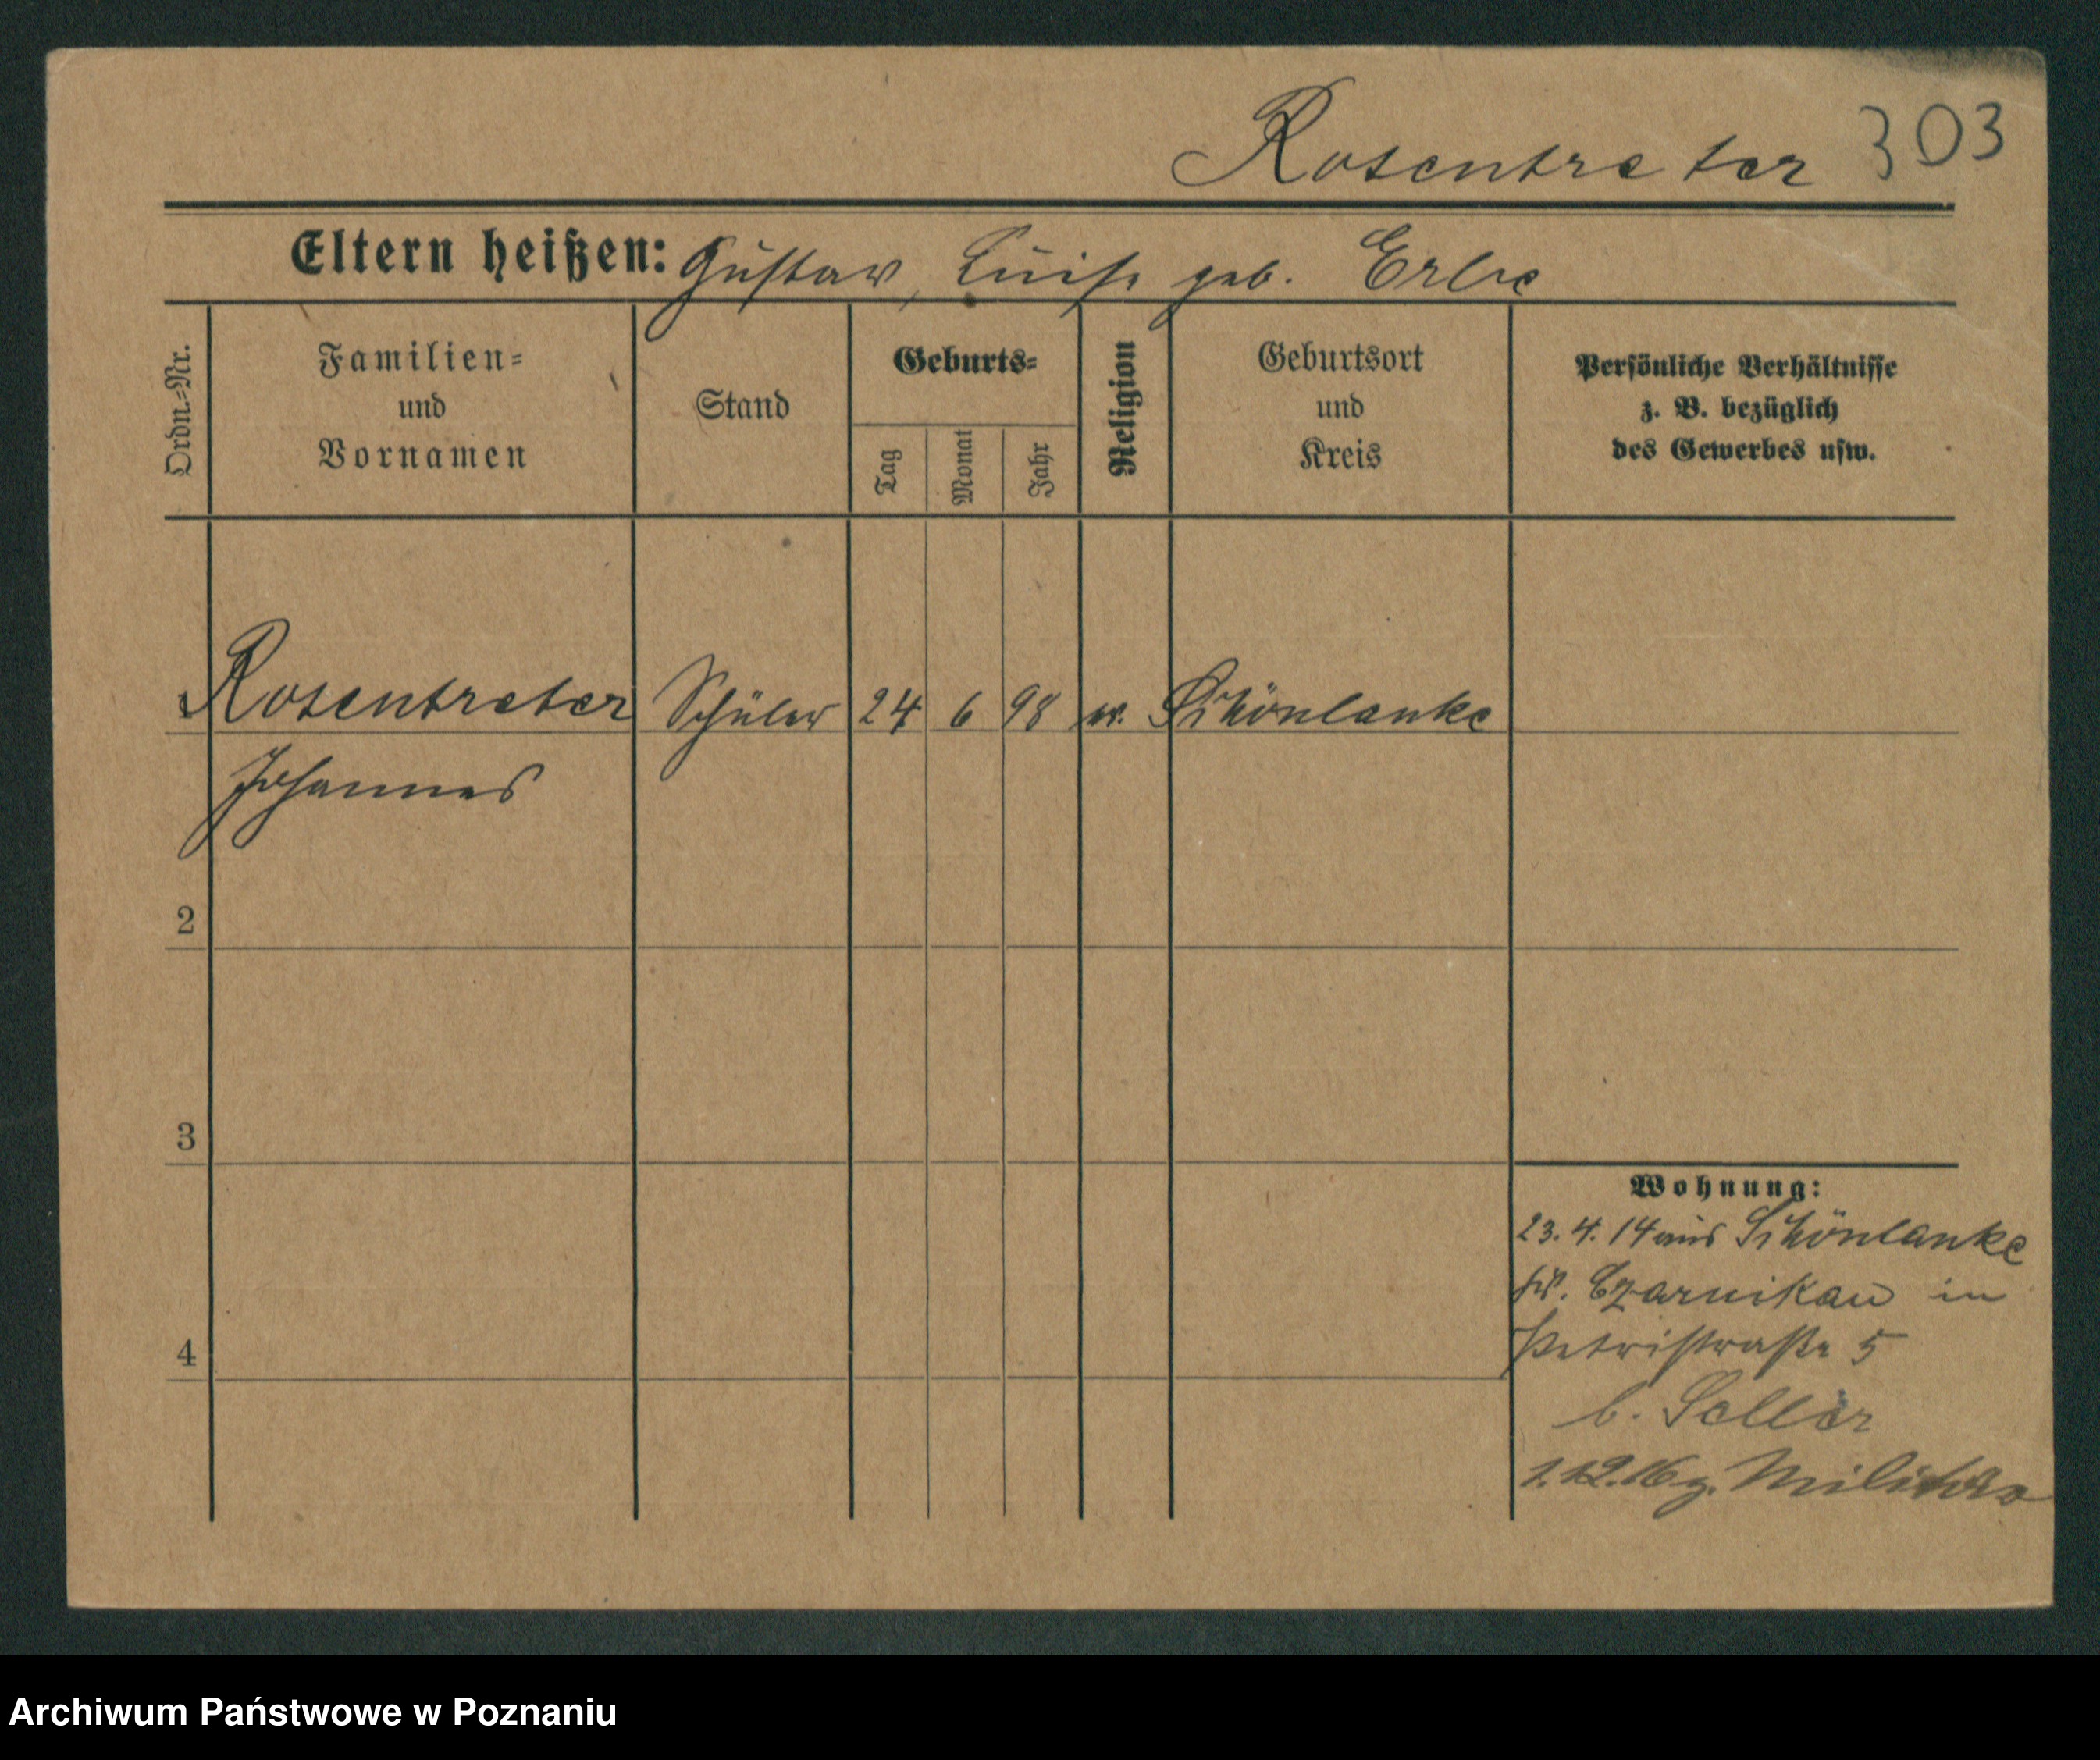 Rosentreter 303
Eltern heißen: Gustav, Luise geb. Erbe
Ordn.=Nr.
Familien=
und
Vornamen
Stand
Geburts=
Tag
Monat
Jahr
Religion
Geburtsort
und
Kreis
Persönliche Verhältnisse
z. B. bezüglich
des Gewerbes usw.
1 Rosentreter Schüler 24 6 98 ev. Schönlanke
Johannes
2
3
4
Wohnung:
23. 4. 14 aus Schönlanke
Kr. Czarnikau in
Petristraße 5
b. Seller
1.12.16 z. Militär
Archiwum Państwowe w Poznaniu